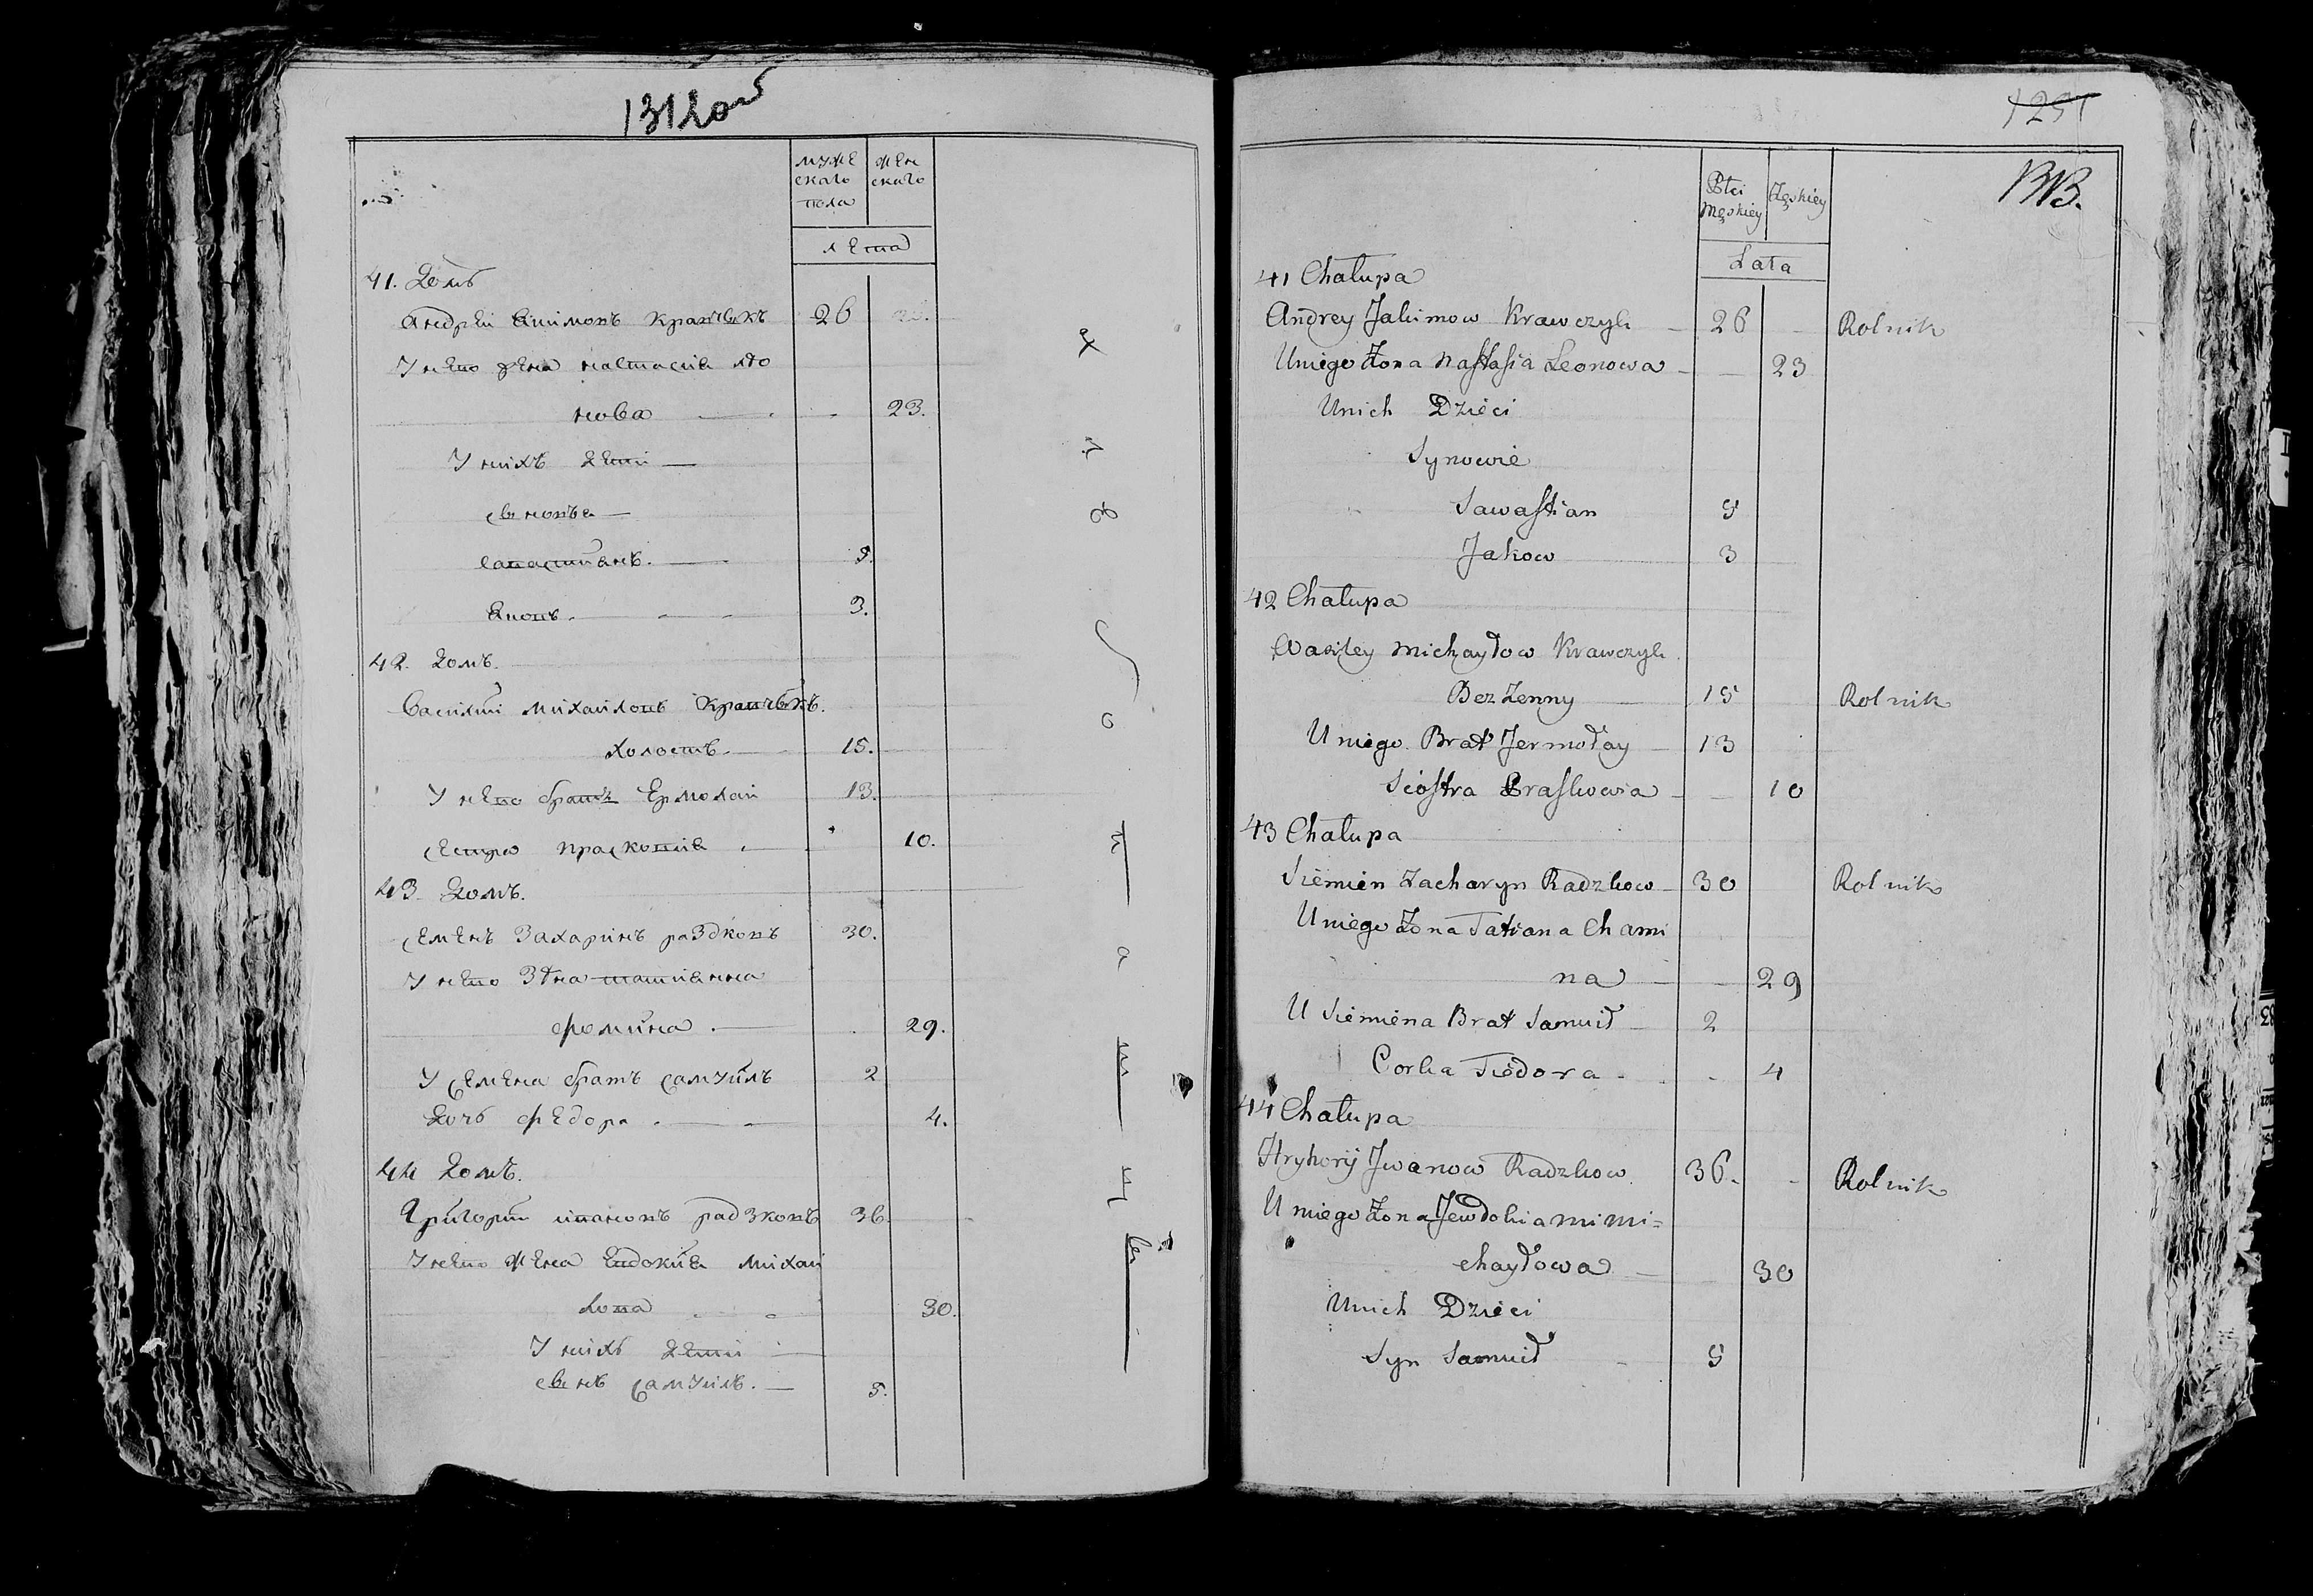 муже
скаго
пола
жен
скаго
лета
41. Домъ
Андрей Якимовъ Кравчикъ 26
У него жена настасия лео
нова 23.
У нихъ дети
сыновья
савастиянъ. 5.
Яковъ. 3.
42. Домъ.
Василий Михайловъ Кравчикъ.
холостъ 15.
У него братъ Ермолай 13.
сестра прасковия 10.
43. Домъ.
семенъ Захаринъ радзковъ 30.
У него Жена татиянна
фомина. 29.
У семена братъ самуйлъ 2
Дочь федора. 4.
44 Домъ.
Григорий ивановъ радзковъ 36.
У него жена Евдокия михай
лова 30.
У нихъ дети
сынъ самуйлъ. 5.
1251
Płci
Męskiey
Żęskiey
Lata
41 Chałupa
Andrey Jakimow Krawczyk 26 Rolnik
Uniego Żona Nastasia Leonowa 23
Unich Dzieci
Synowie
Sawastian 5
Jakow 3
42 Chałupa
Wasiley Michayłow Krawczyk
BezŻenny 15 Rolnik
Uniego Brat Jermołay 13
Siostra Praskowia 10
43 Chałupa
Siemien Zacharyn Radzkow 30 Rolnik
Uniego Żona Tatiana Chami
na 29
U Siemiena Brat Samuił 2
Corka Fiedora 4
44 Chałupa
Hryhorij Jwanow Radzkow 36. Rolnik
Uniego Żona Jewdokia Mimi=
chayłowa 30
Unich Dzieci
Syn Samuił 5